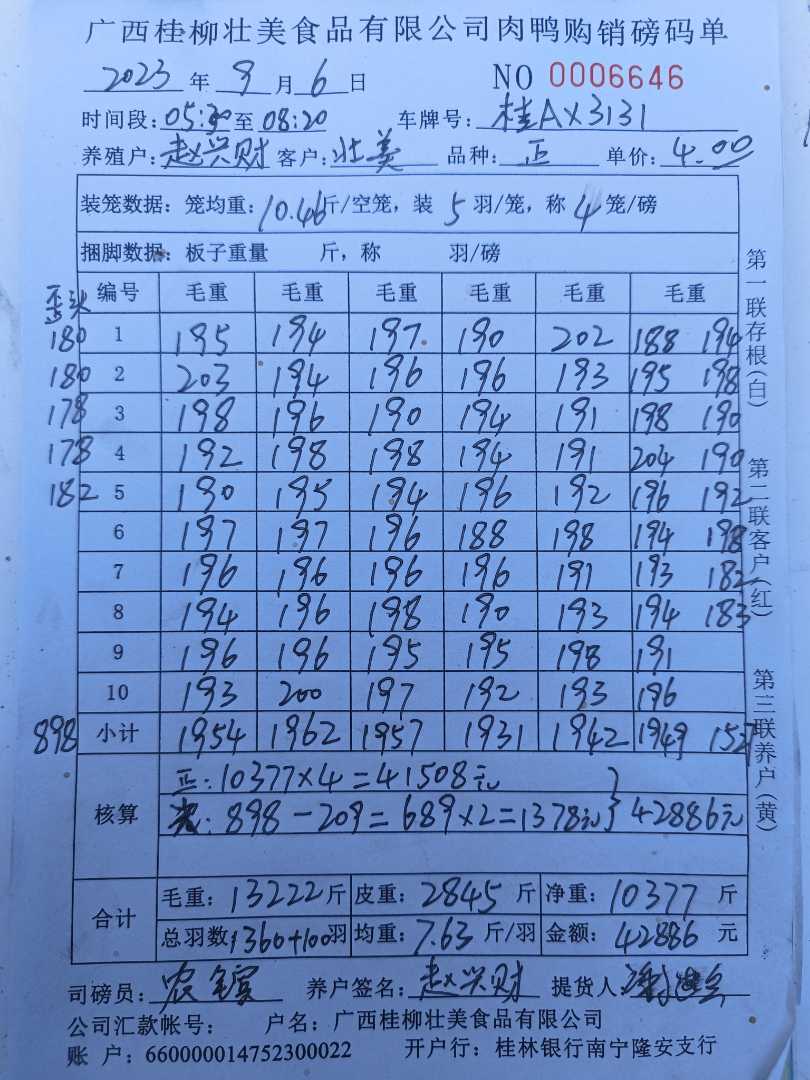 广西桂柳壮美食品有限公司肉鸭购销磅码单
2023 年 9 月 6 日 NO 0006646
时间段: 05:30 至 08:20 车牌号: 桂AX3131
养殖户: 赵兴财 客户: 壮美 品种: 正 单价: 4.00
装笼数据: 笼均重: 10.46斤/空笼, 装 5 羽/笼, 称 4 笼/磅
捆脚数据: 板子重量 斤, 称 羽/磅
歪头 编号 毛重 毛重 毛重 毛重 毛重 毛重
180 1 195 194 197 190 202 188 194
180 2 203 194 196 196 193 195 198
178 3 198 196 190 194 191 198 190
178 4 192 198 198 194 191 204 190
182 5 190 195 194 196 192 196 192
6 197 197 196 188 198 194 198
7 196 196 196 196 191 193 182
8 194 196 198 190 193 194 183
9 196 196 195 195 198 191
10 193 200 197 192 193 196
898 小计 1954 1962 1957 1931 1942 1949 1527
核算
正: 10377×4=41508元
: 898-209=689×2=1378元} 42886元
合计
毛重: 13222 斤 皮重: 2845 斤 净重: 10377 斤
总羽数 1360+100羽 均重: 7.63 斤/羽 金额: 42886 元
司磅员: 农 养户签名: 赵兴财 提货人:
公司汇款帐号: 户名: 广西桂柳壮美食品有限公司
账 户: 660000014752300022 开户行: 桂林银行南宁隆安支行
第一联存根(白)
第二联客户(红)
第三联养户(黄)